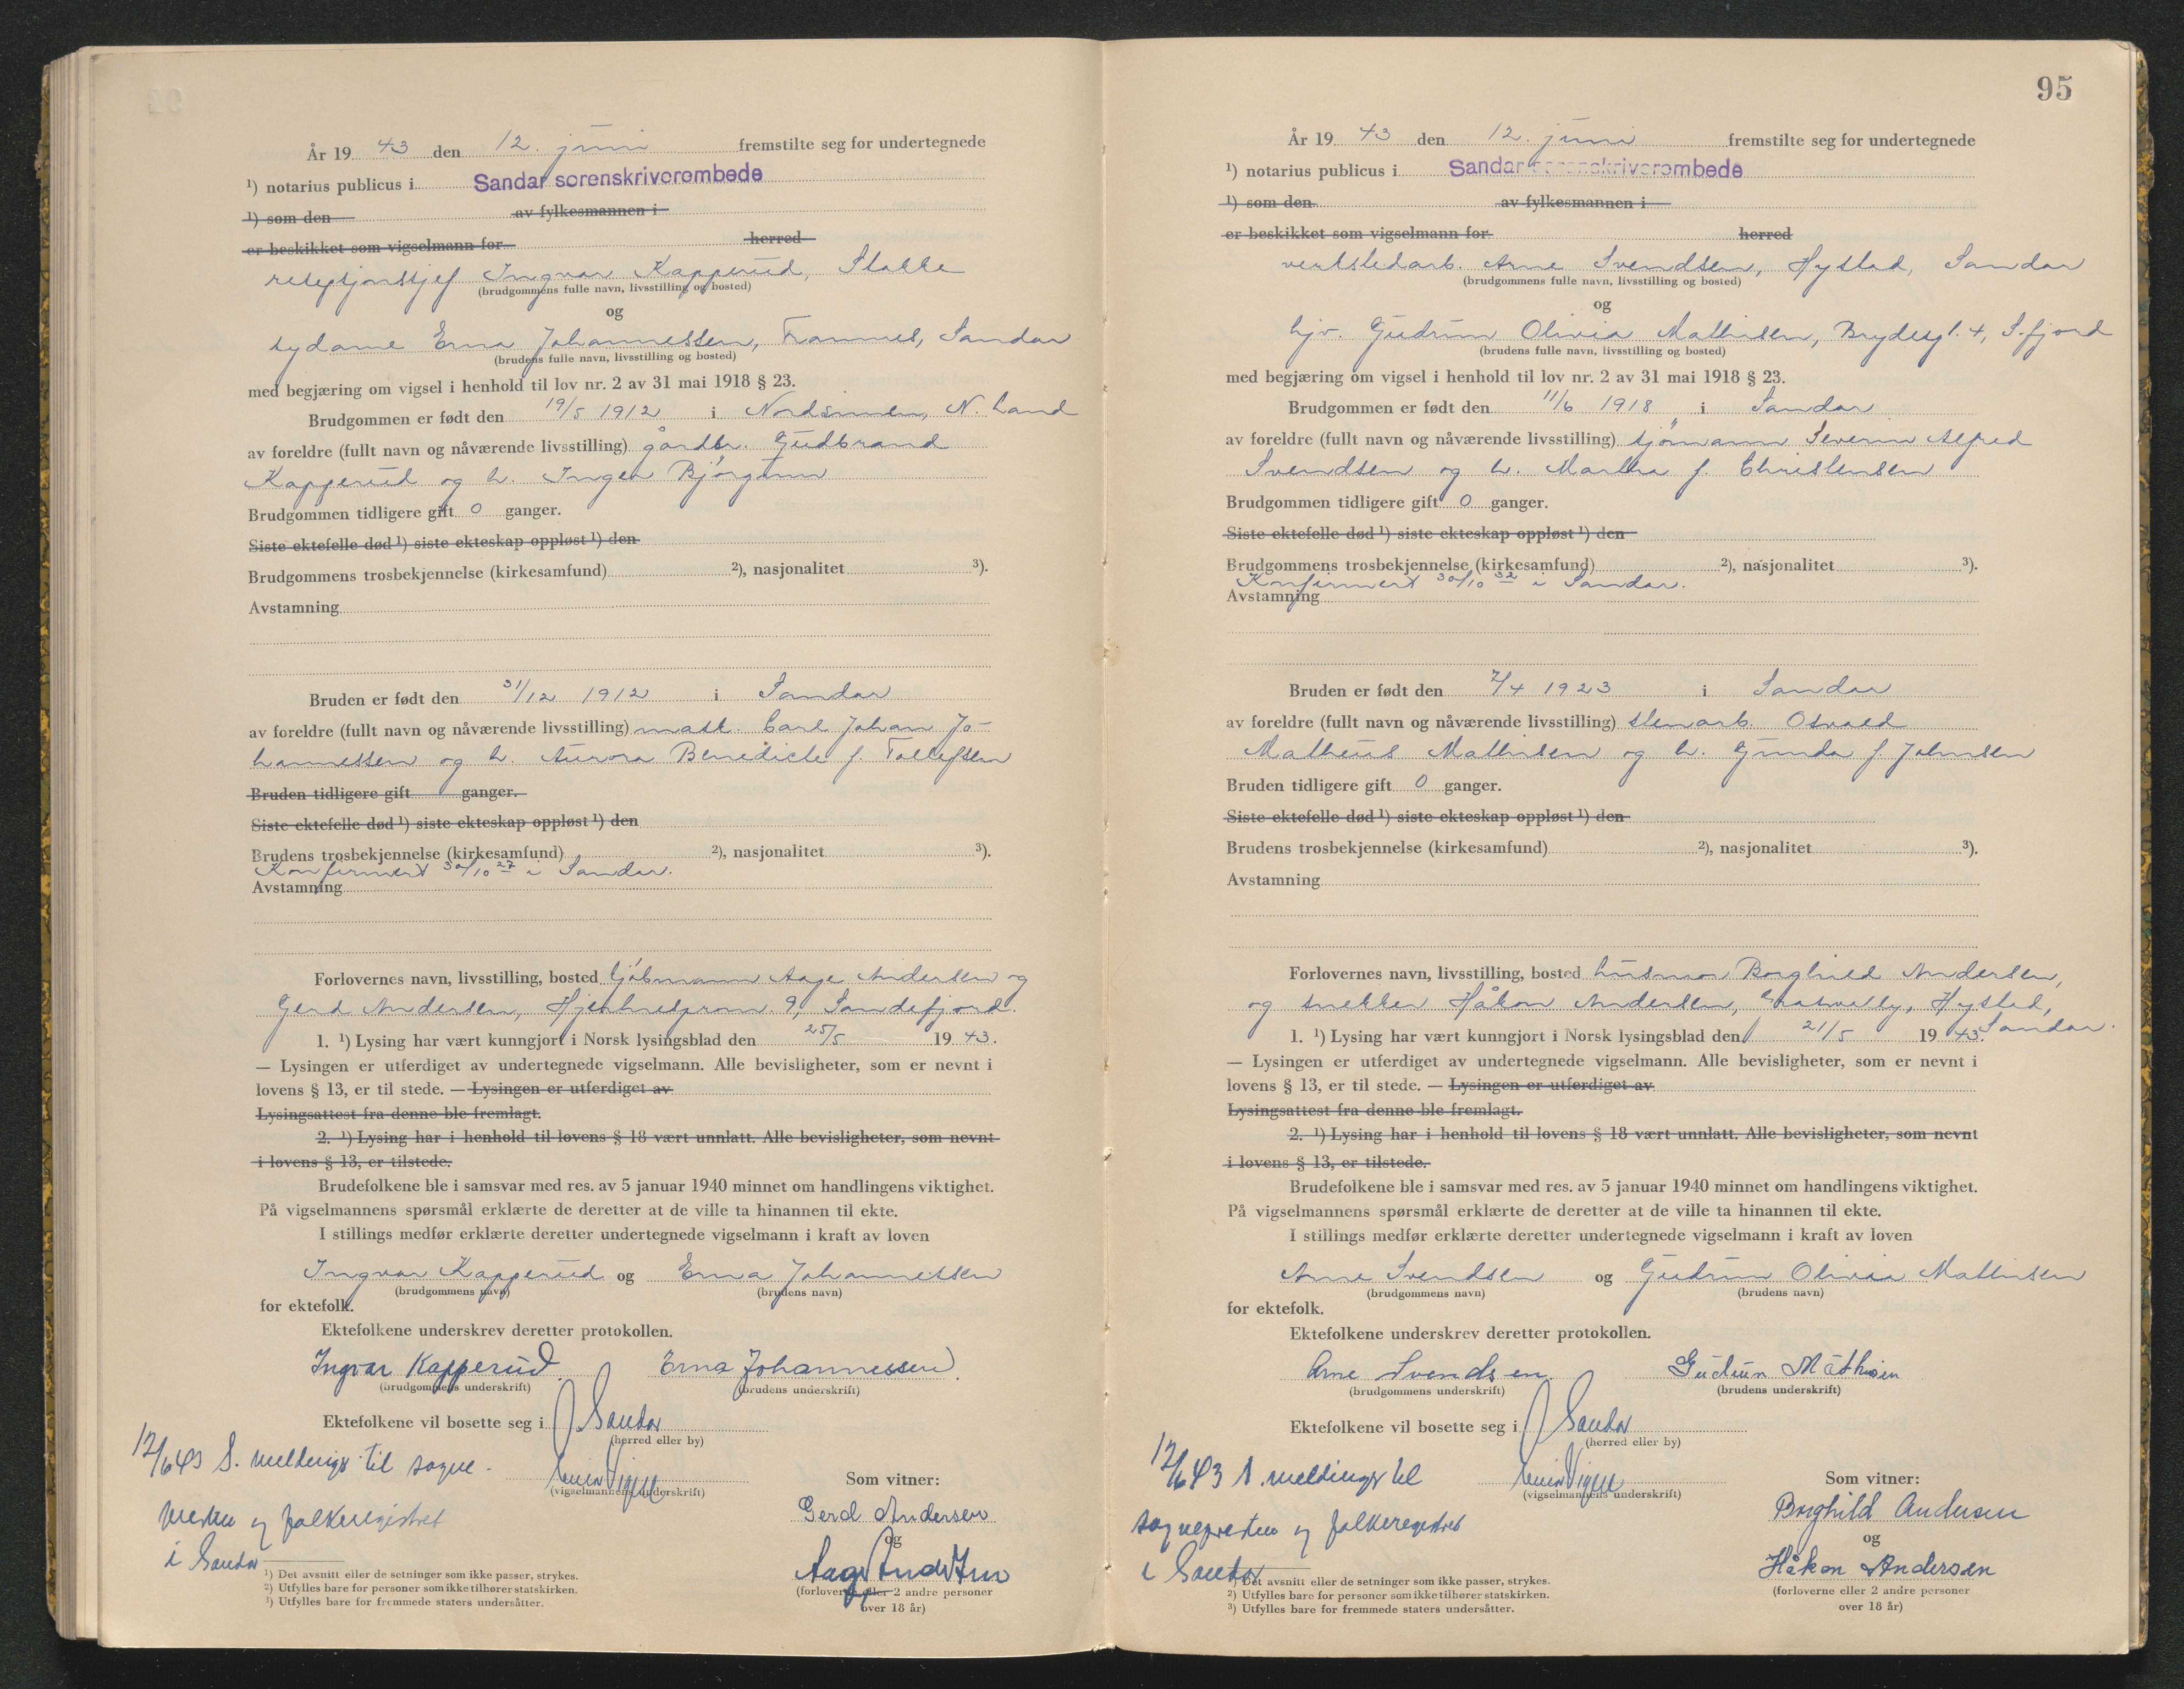 År 19 43 den 12. juni fremstilte seg for undertegnede
¹) notarius publicus i Sandar sorenskriverembede
¹) som den av fylkesmannen i
er beskikket som vigselmann for herred
Ingvar Kapperud, Stokke
(brudgommens fulle navn, livsstilling og bosted)
og
sydame Erna Johannessen, Framnes, Sandar
(brudens fulle navn, livsstilling og bosted)
med begjæring om vigsel i henhold til lov nr. 2 av 31 mai 1918 § 23.
Brudgommen er født den 19/5 1912 i Nordsinnen, N. Land
av foreldre (fullt navn og nåværende livsstilling) gårdbr. Gudbrand
Kapperud og h. Inger
Brudgommen tidligere gift 0 ganger.
Siste ektefelle død ¹) siste ekteskap oppløst ¹) den
Brudgommens trosbekjennelse (kirkesamfund) ²), nasjonalitet ³).
Avstamning
Bruden er født den 31/12 1912 i Sandar
av foreldre (fullt navn og nåværende livsstilling) mask. Carl Johan Jo-
hannessen og h. Aurora Benedicte f. Tollefsen
Bruden tidligere gift ganger.
Siste ektefelle død ¹) siste ekteskap oppløst ¹) den
Brudens trosbekjennelse (kirkesamfund) ²), nasjonalitet ³).
Konfirmert 30/10 27 i Sandar.
Avstamning
Forlovernes navn, livsstilling, bosted kjøbmann Aage Andersen og
Gerd Andersen, Hjertnesprom. 9, Sandefjord.
1. ¹) Lysing har vært kunngjort i Norsk lysingsblad den 25/5 19 43.
— Lysingen er utferdiget av undertegnede vigselmann. Alle bevisligheter, som er nevnt i
lovens § 13, er til stede. — Lysingen er utferdiget av
Lysingsattest fra denne ble fremlagt.
2. ¹) Lysing har i henhold til lovens § 18 vært unnlatt. Alle bevisligheter, som nevnt
i lovens § 13, er tilstede.
Brudefolkene ble i samsvar med res. av 5 januar 1940 minnet om handlingens viktighet.
På vigselmannens spørsmål erklærte de deretter at de ville ta hinannen til ekte.
I stillings medfør erklærte deretter undertegnede vigselmann i kraft av loven
Ingvar Kapperud og Erna Johannessen
(brudgommens navn) (brudens navn)
for ektefolk.
Ektefolkene underskrev deretter protokollen.
Ingvar Kapperud Erna Johannessen
(brudgommens underskrift) (brudens underskrift)
Ektefolkene vil bosette seg i Sandar
(herred eller by)
12/6 43 S. meldings til sogne-
(vigselmannens underskrift)
Som vitner:
presten og folkeregistret
Gerd Andersen
og
i Sandar
Aage Andersen
(forloverne eller 2 andre personer
over 18 år)
¹) Det avsnitt eller de setninger som ikke passer, strykes.
²) Utfylles bare for personer som ikke tilhører statskirken.
³) Utfylles bare for fremmede staters undersåtter.
95
År 19 43 den 12. juni fremstilte seg for undertegnede
¹) notarius publicus i Sandar sorenskriverembede
¹) som den av fylkesmannen i
er beskikket som vigselmann for herred
verkstedarb. Arne Svendsen, Hystad, Sandar
(brudgommens fulle navn, livsstilling og bosted)
og
hjv. Gudrun Olivia Mathisen, Brydesgt. 4, S.fjord
(brudens fulle navn, livsstilling og bosted)
med begjæring om vigsel i henhold til lov nr. 2 av 31 mai 1918 § 23.
Brudgommen er født den 11/6 1918 i Sandar
av foreldre (fullt navn og nåværende livsstilling) sjømann Severin Alfred
Svendsen og h. Martha f. Christensen
Brudgommen tidligere gift 0 ganger.
Siste ektefelle død ¹) siste ekteskap oppløst ¹) den
Brudgommens trosbekjennelse (kirkesamfund) ²), nasjonalitet ³).
Konfirmert 30/10 32 i Sandar.
Avstamning
Bruden er født den 7/4 1923 i Sandar
av foreldre (fullt navn og nåværende livsstilling) stenarb. Osvald
Matheus Mathisen og h. Gunda f. Johnsen
Bruden tidligere gift 0 ganger.
Siste ektefelle død ¹) siste ekteskap oppløst ¹) den
Brudens trosbekjennelse (kirkesamfund) ²), nasjonalitet ³).
Avstamning
Forlovernes navn, livsstilling, bosted husmor Borghild Andersen,
og snekker Håkon Andersen, Hystad,
Sandar.
1. ¹) Lysing har vært kunngjort i Norsk lysingsblad den 21/5 19 43.
— Lysingen er utferdiget av undertegnede vigselmann. Alle bevisligheter, som er nevnt i
lovens § 13, er til stede. — Lysingen er utferdiget av
Lysingsattest fra denne ble fremlagt.
2. ¹) Lysing har i henhold til lovens § 18 vært unnlatt. Alle bevisligheter, som nevnt
i lovens § 13, er tilstede.
Brudefolkene ble i samsvar med res. av 5 januar 1940 minnet om handlingens viktighet.
På vigselmannens spørsmål erklærte de deretter at de ville ta hinannen til ekte.
I stillings medfør erklærte deretter undertegnede vigselmann i kraft av loven
Arne Svendsen og Gudrun Olivia Mathisen
(brudgommens navn) (brudens navn)
for ektefolk.
Ektefolkene underskrev deretter protokollen.
Arne Svendsen Gudrun Mathisen
(brudgommens underskrift) (brudens underskrift)
Ektefolkene vil bosette seg i Sandar
(herred eller by)
12/6 43 S. meldings til
(vigselmannens underskrift)
Som vitner:
sognepresten og folkeregistret
Borghild Andersen
og
i Sandar
Håkon Andersen
(forloverne eller 2 andre personer
over 18 år)
¹) Det avsnitt eller de setninger som ikke passer, strykes.
²) Utfylles bare for personer som ikke tilhører statskirken.
³) Utfylles bare for fremmede staters undersåtter.